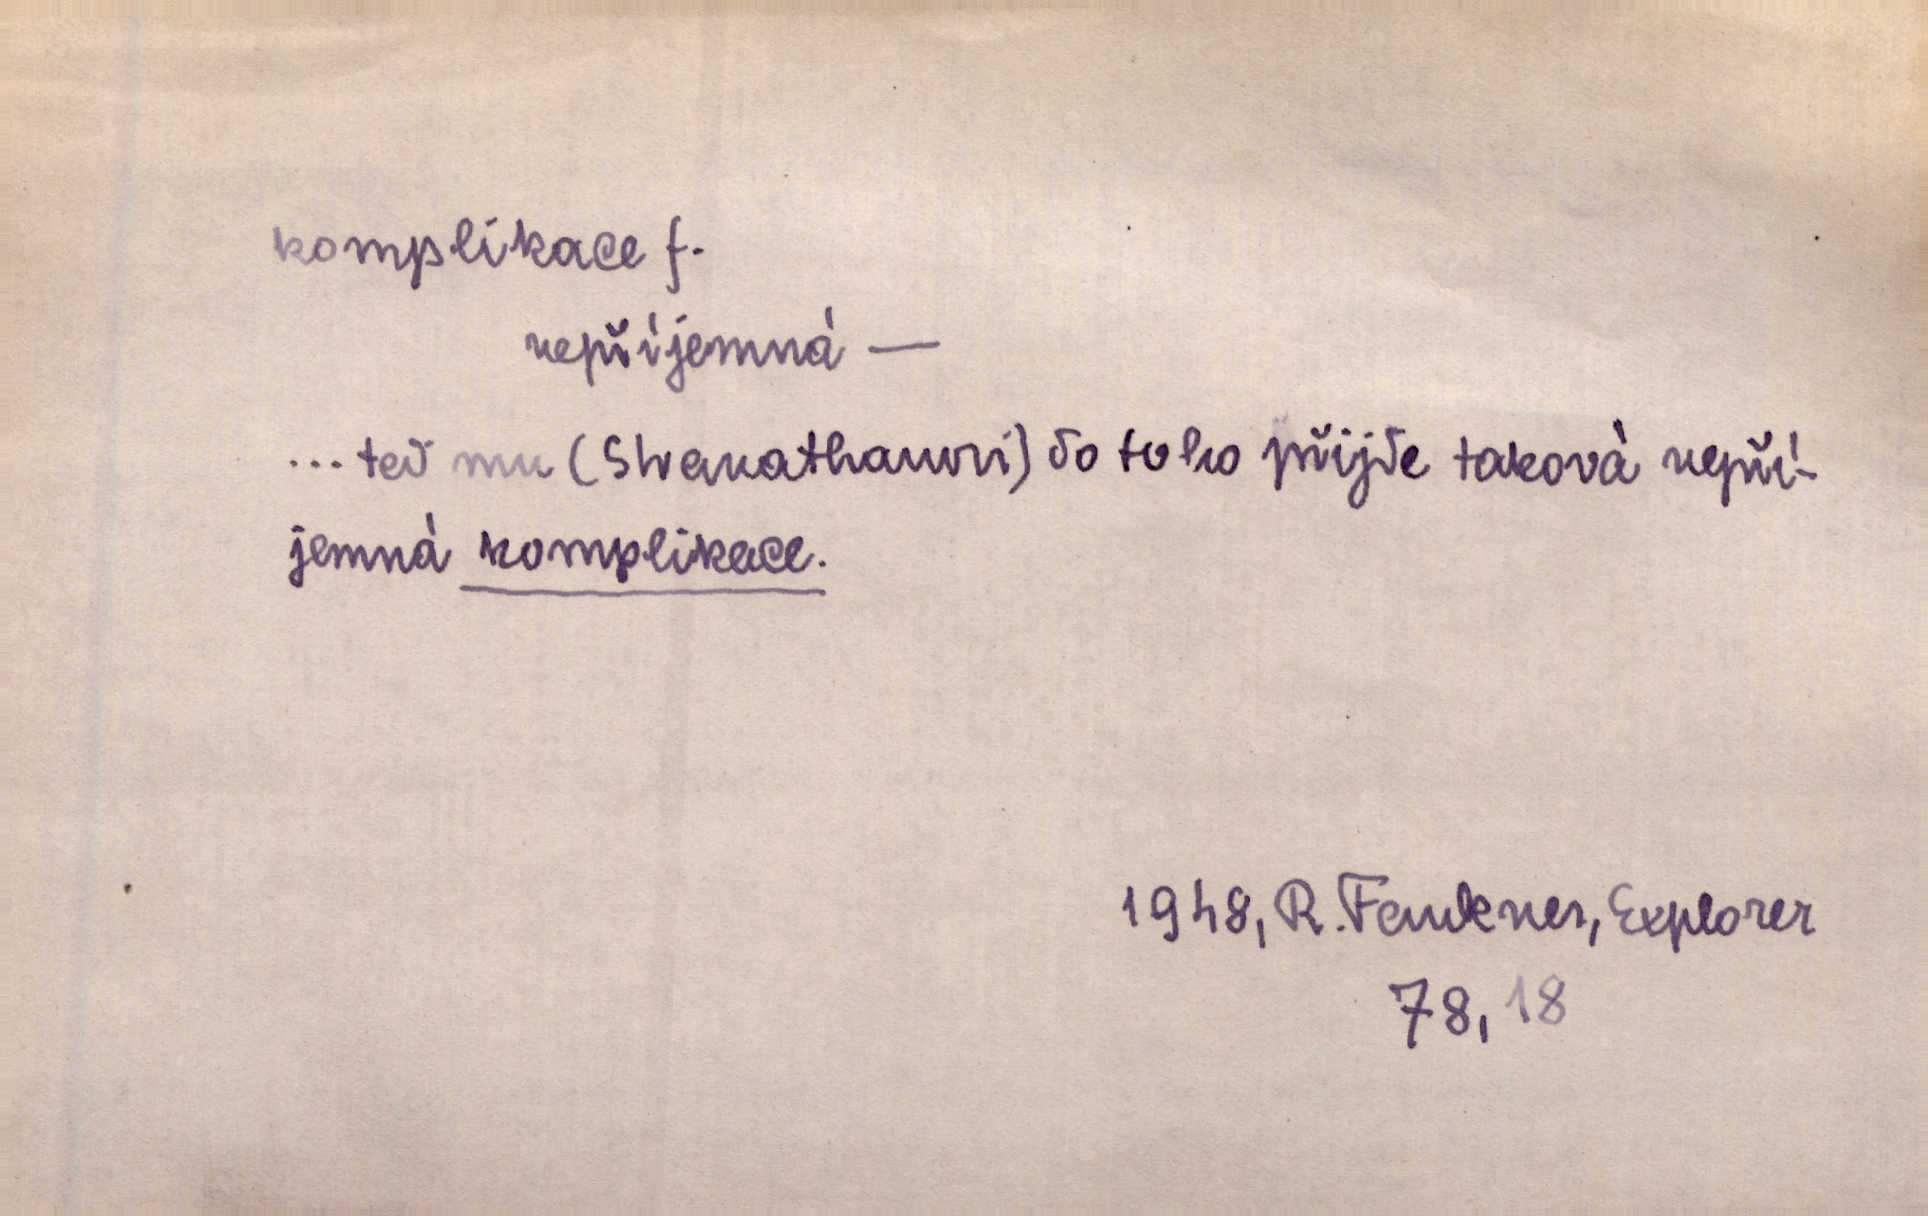 komplikace f.
nepříjemná —
... teď mu () do toho přijde taková nepří-
jemná komplikace.
1948, R. Faukner, Explorer
78, 18